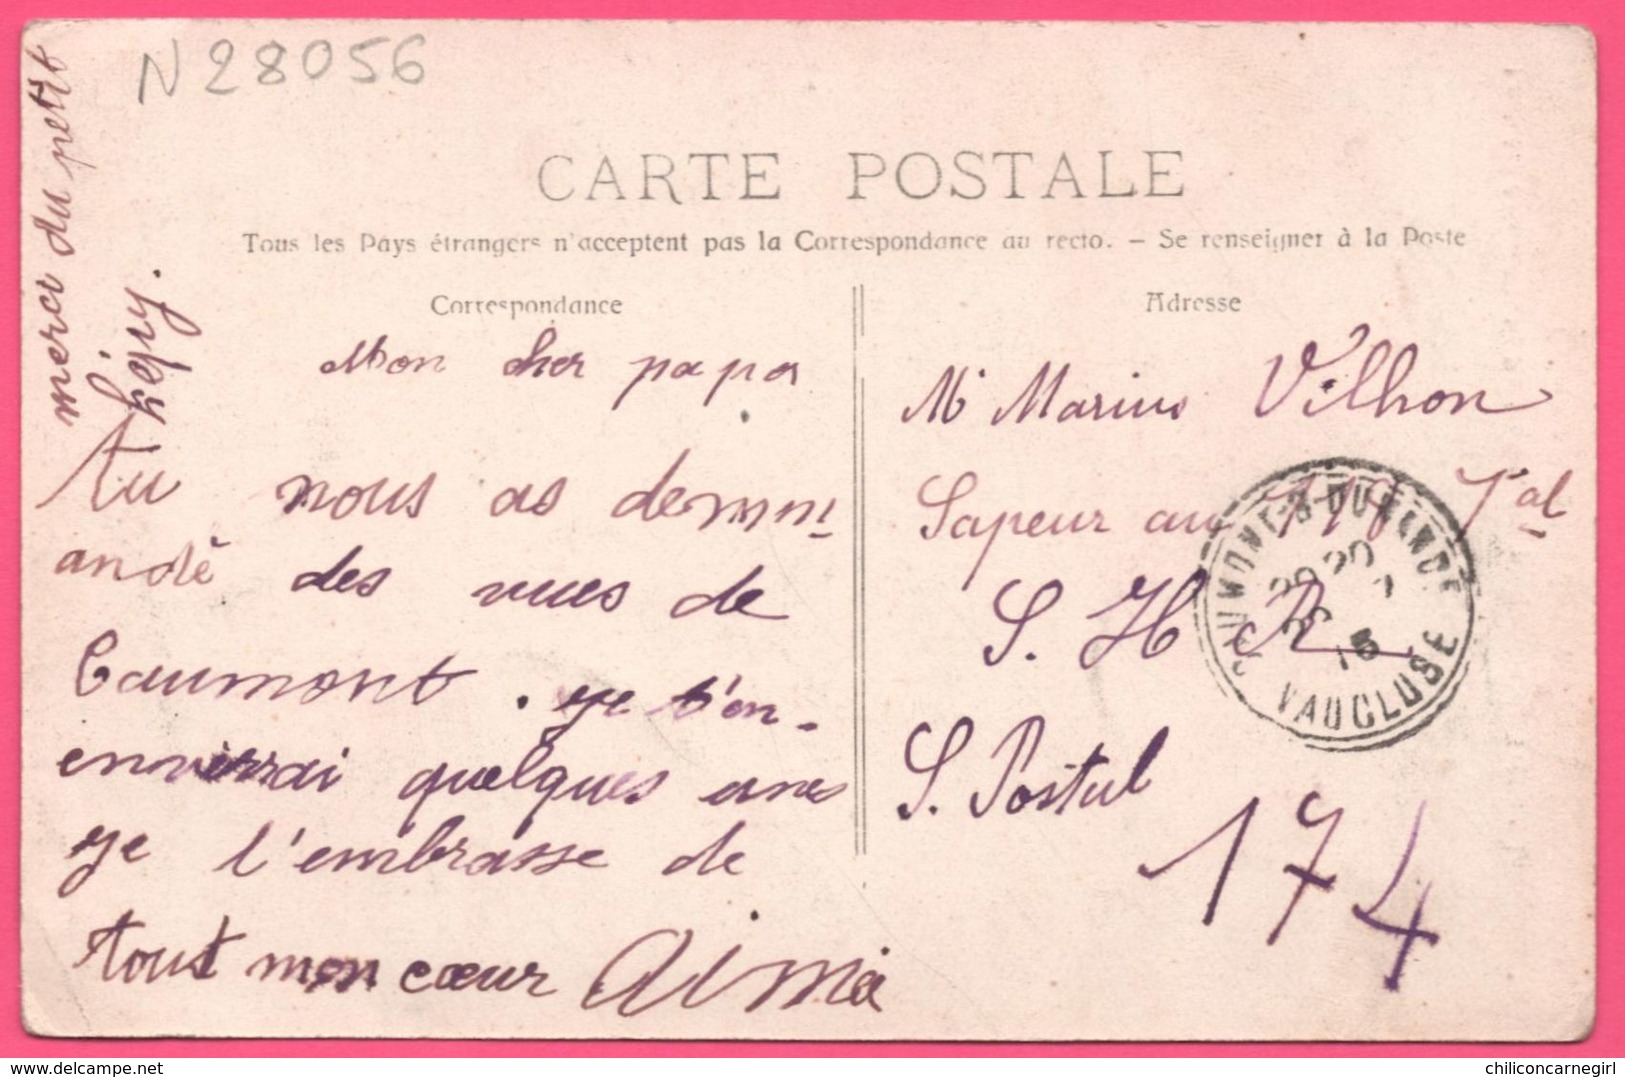 N 28056
merci du petit
Léguy.
CARTE POSTALE
Tous les Pays étrangers n'acceptent pas la Correspondance au recto. – Se renseigner à la Poste
Correspondance
Mon cher papa
Tu nous as demm
andé des vues de
Caumont. ye t'en-
enverrai quelques unes
ye t'embrasse de
tout mon cœur Aimé
Adresse
Mr Marius Vilhon
Sapeur au 118 T'al
S. H R
S. Postal
174
CAUMONT-S-DURANCE
VAUCLUSE
delcampe.net
chiliconcarnegirl